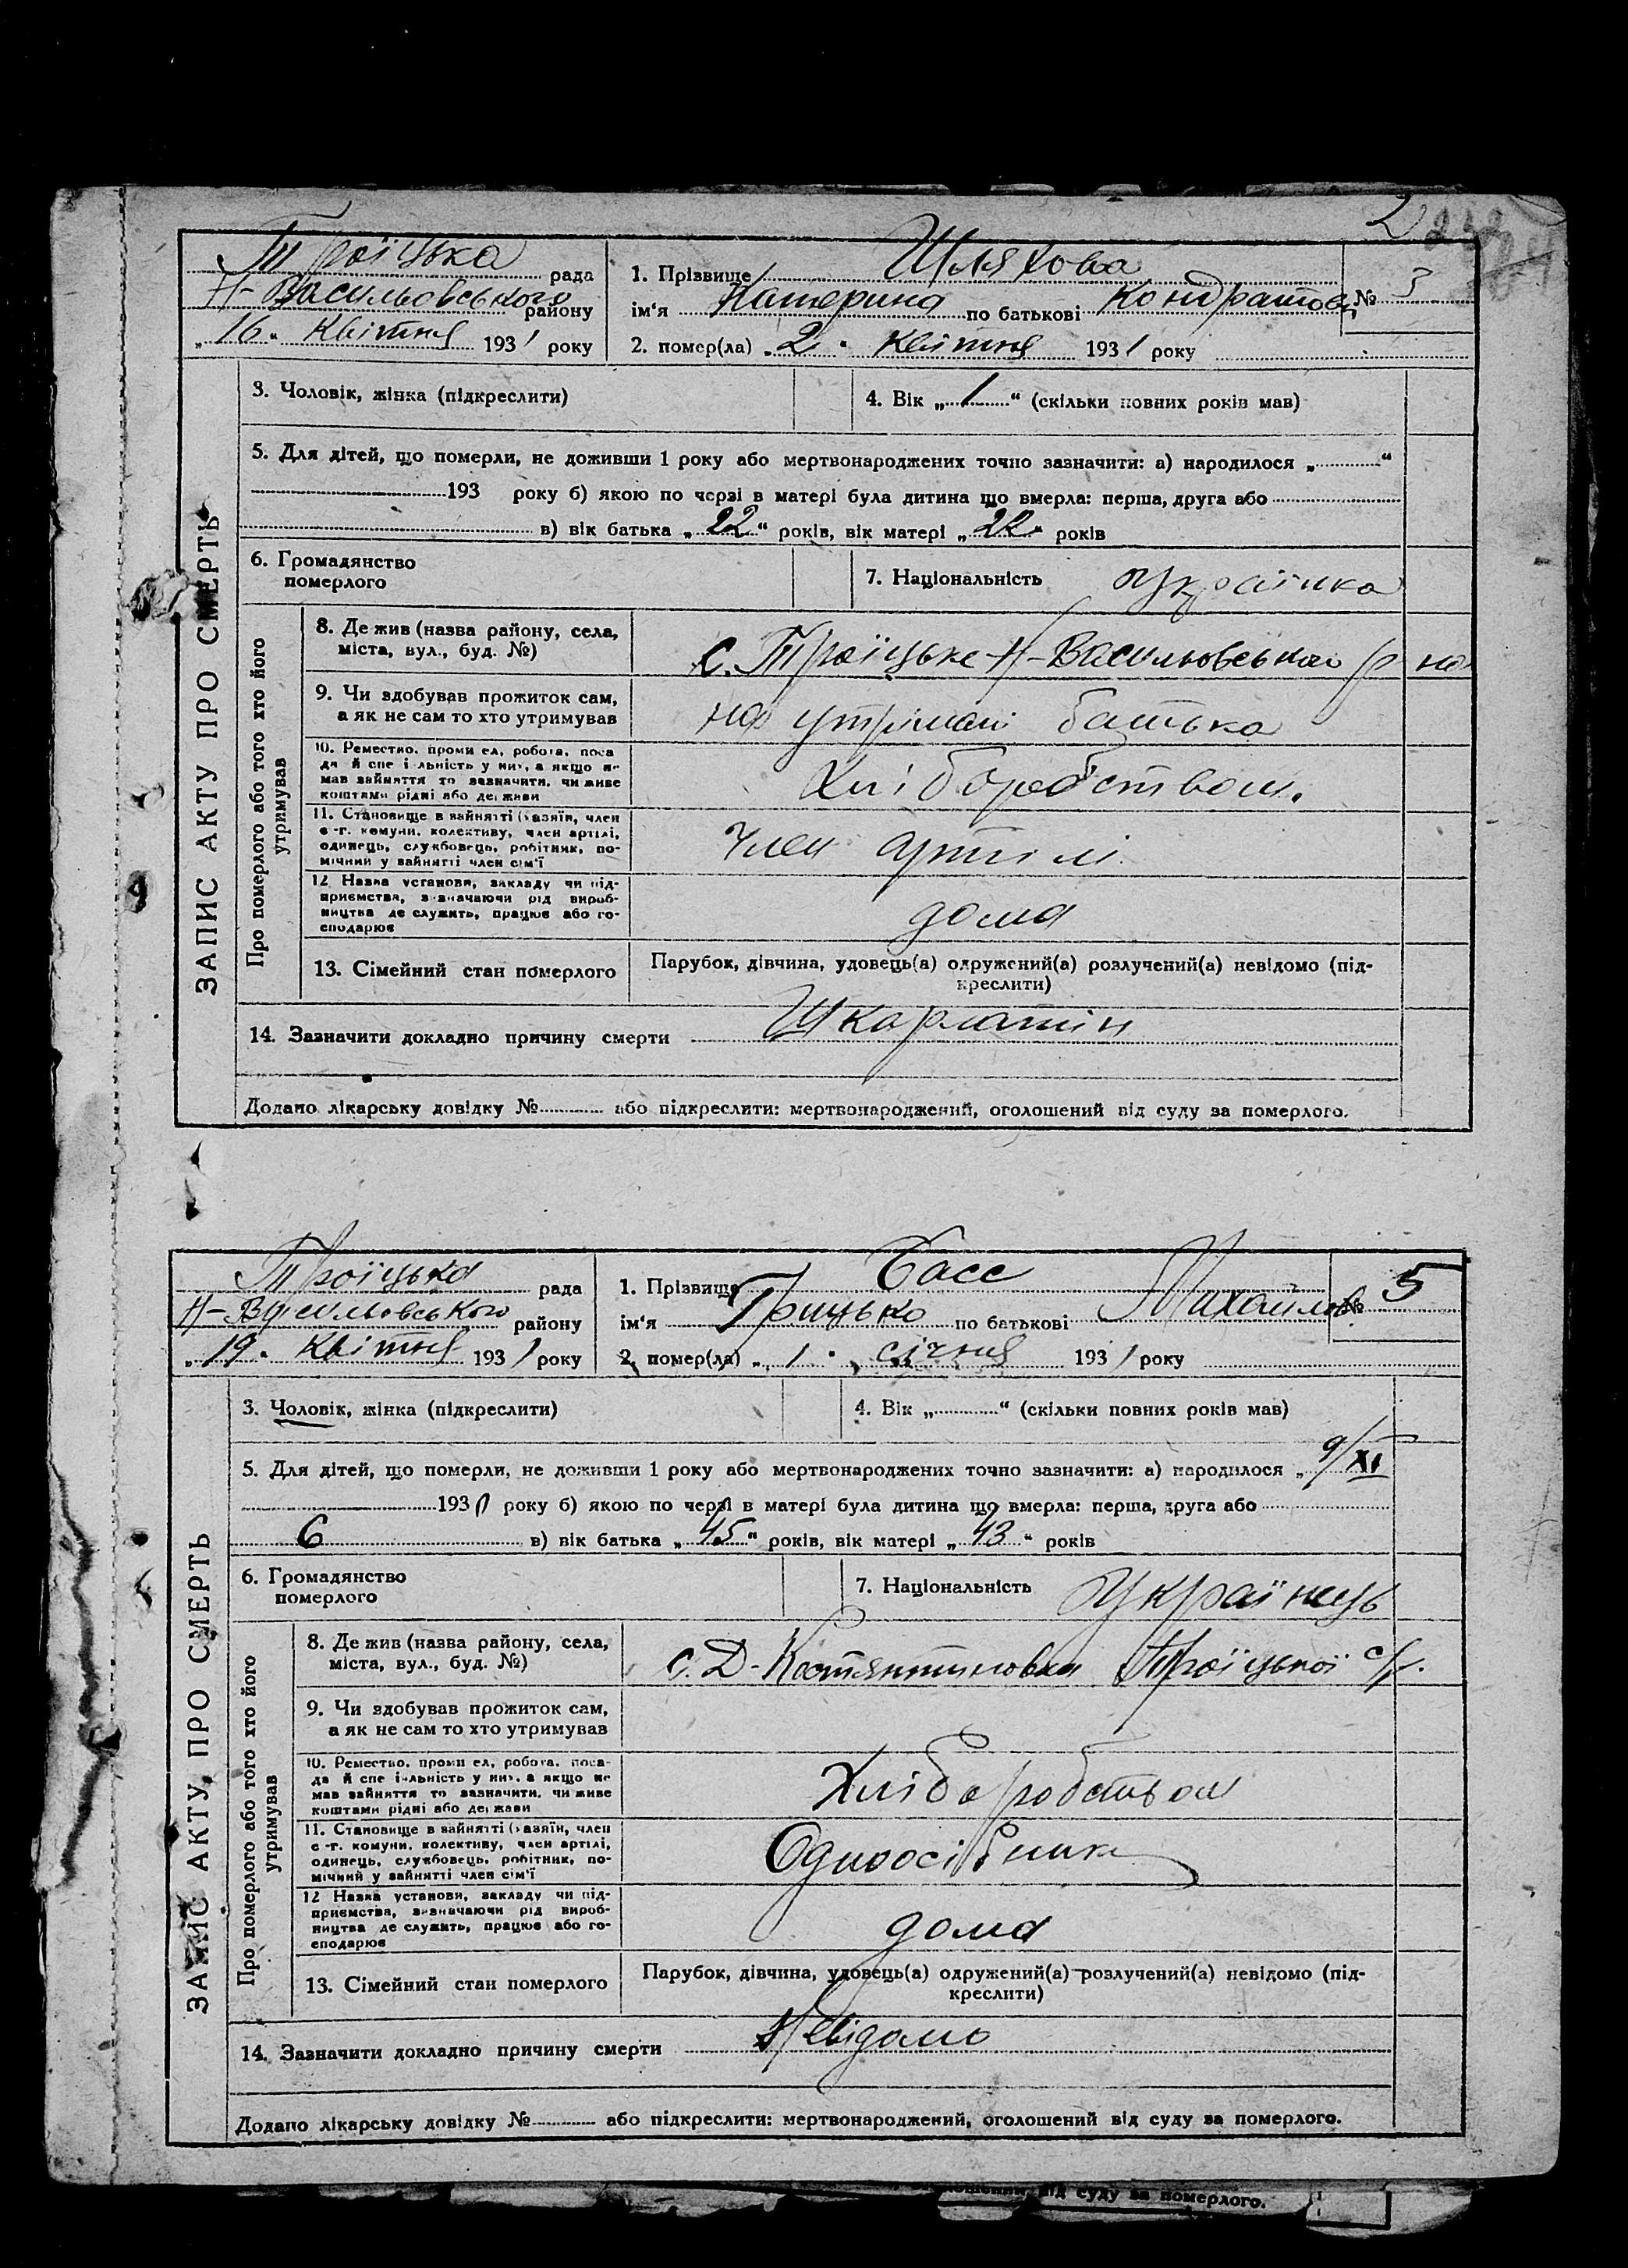 2
Троїцька рада
Н-Васильовського району
„16" Квітня 1931 року
1. Прізвище Шляхова
ім'я Катерина по батькові Кондратов
№ 3
2. помер(ла) „2" Квітня 1931 року
ЗАПИС АКТУ ПРО СМЕРТЬ
3. Чоловік, жінка (підкреслити)
4. Вік „1" (скільки повних років мав)
5. Для дітей, що померли, не доживши 1 року або мертвонароджених точно зазначити: а) народилося „ "
193 року б) якою по черзі в матері була дитина що вмерла: перша, друга або
в) вік батька „22" років, вік матері „22" років
6. Громадянство
померлого
7. Національність українка
Про померлого або того хто його
утримував
8. Де жив (назва району, села,
міста, вул., буд. №)
с. Троїцьке Н-Васильовського р на
9. Чи здобував прожиток сам,
а як не сам то хто утримував
на утримані батька
10. Ремество, промисел, робота, поса-
да й спеціяльність у них, а якщо не
мав зайняття то зазначити, чи живе
коштами рідні або держави
Хліборобством.
11. Становище в зайнятті (хазяїн, член
с-г. комуни, колективу, член артілі,
одинець, службовець, робітник, по-
мічний у зайнятті член сім'ї
член артілі
12 Назва установи, закладу чи під-
приємства, зазначаючи рід вироб-
ництва де служить, працює або го-
сподарює
дома
13. Сімейний стан померлого
Парубок, дівчина, удовець(а) одружений(а) розлучений(а) невідомо (під-
креслити)
14. Зазначити докладно причину смерти Шкарлатін
Додано лікарську довідку № або підкреслити: мертвонароджений, оголошений від суду за померлого.
Троїцька рада
Н-Васильовського району
„19" Квітня 1931 року
1. Прізвище Басс
ім'я Грицько по батькові Михайлов.
№ 5
2. помер(ла) „1" січня 1931 року
ЗАПИС АКТУ ПРО СМЕРТЬ
3. Чоловік, жінка (підкреслити)
4. Вік „ " (скільки повних років мав)
5. Для дітей, що померли, не доживши 1 року або мертвонароджених точно зазначити: а) народилося „9/XI
1930 року б) якою по черзі в матері була дитина що вмерла: перша, друга або
6 в) вік батька „45" років, вік матері „43" років
6. Громадянство
померлого
7. Національність Українець
Про померлого або того хто його
утримував
8. Де жив (назва району, села,
міста, вул., буд. №)
с. Д-Костянтиновка Троїцької с/р.
9. Чи здобував прожиток сам,
а як не сам то хто утримував
10. Ремество, промисел, робота, поса-
да й спеціяльність у них, а якщо не
мав зайняття то зазначити, чи живе
коштами рідні або держави
Хлібаробством
11. Становище в зайнятті (хазяїн, член
с-г. комуни, колективу, член артілі,
одинець, службовець, робітник, по-
мічний у зайнятті член сім'ї
Одноосібник
12 Назва установи, закладу чи під-
приємства, зазначаючи рід вироб-
ництва де служить, працює або го-
сподарює
дома
13. Сімейний стан померлого
Парубок, дівчина, удовець(а) одружений(а) розлучений(а) невідомо (під-
креслити)
14. Зазначити докладно причину смерти Невідомо
Додано лікарську довідку № або підкреслити: мертвонароджений, оголошений від суду за померлого.
від суду за померлого.